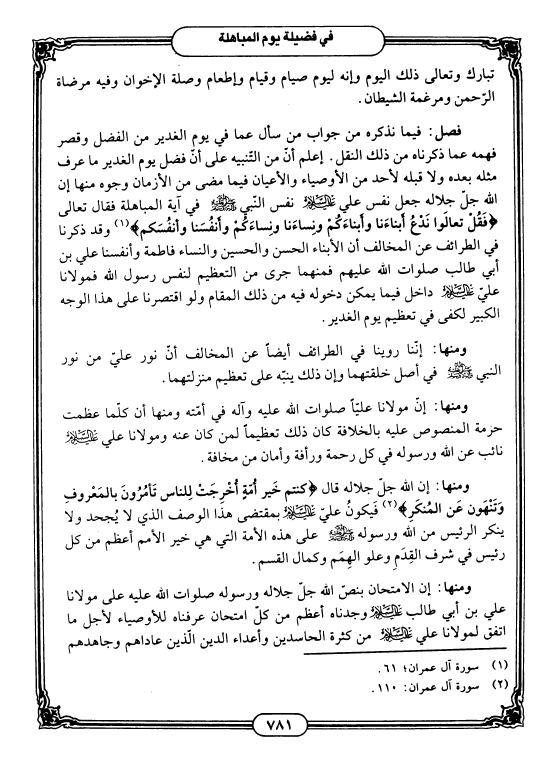 في فضيلة يوم المباهلة
تبارك وتعالى ذلك اليوم وإنه ليوم صيام وقيام وإطعام وصلة الإخوان وفيه مرضاة
الرّحمن ومرغمة الشيطان.
فصل: فيما نذكره من جواب من سأل عما في يوم الغدير من الفضل وقصر
فهمه عما ذكرناه من ذلك النقل. إعلم أنّ من التّنبيه على أنّ فضل يوم الغدير ما عرف
مثله بعده ولا قبله لأحد من الأوصياء والأعيان فيما مضى من الأزمان وجوه منها إن
الله جلّ جلاله جعل نفس علي عليه السلام نفس النّبي ﷺ في آية المباهلة فقال تعالى
﴿فَقُلْ تعالَوا نَدْعُ أبناءَنا وأبناءَكُمْ ونِساءَنا ونِساءَكُمْ وأنفُسَنا وأنفُسَكم﴾(١) وقد ذكرنا
في الطرائف عن المخالف أن الأبناء الحسن والحسين والنساء فاطمة وأنفسنا علي بن
أبي طالب صلوات الله عليهم فمنهما جرى من التعظيم لنفس رسول الله فمولانا
عليّ عليه السلام داخل فيما يمكن دخوله فيه من ذلك المقام ولو اقتصرنا على هذا الوجه
الكبير لكفى في تعظيم يوم الغدير.
ومنها: إنّنا روينا في الطرائف أيضاً عن المخالف أنّ نور عليّ من نور
النبي ﷺ في أصل خلقتهما وإن ذلك ينبّه على تعظيم منزلتهما.
ومنها: إنّ مولانا عليّاً صلوات الله عليه وآله في أمّته ومنها أن كلّما عظمت
حرمة المنصوص عليه بالخلافة كان ذلك تعظيماً لمن كان عنه ومولانا علي عليه السلام
نائب عن الله ورسوله في كل رحمة ورأفة وأمان من مخافة.
ومنها: إن الله جلّ جلاله قال ﴿كنتم خَير أُمّةٍ أُخْرِجَتْ لِلناس تَأمُرُونَ بالمَعْروفِ
وَتَنْهَون عَن المُنكَرِ﴾(٢) فَيكونُ عليّ عليه السلام بمقتضى هذا الوصف الذي لا يُجحد ولا
ينكر الرئيس من الله ورسوله ﷺ على هذه الأمة التي هي خير الأمم أعظم من كل
رئيس في شرف القِدَم وعلو الهِمَم وكمال القسم.
ومنها: إن الامتحان بنصّ الله جلّ جلاله ورسوله صلوات الله عليه على مولانا
علي بن أبي طالب عليه السلام وجدناه أعظم من كلّ امتحان عرفناه للأوصياء لأجل ما
اتفق لمولانا علي عليه السلام من كثرة الحاسدين وأعداء الدين الّذين عاداهم وجاهدهم
(١) سورة آل عمران؛ ٦١.
(٢) سورة آل عمران: ١١٠.
٧٨١